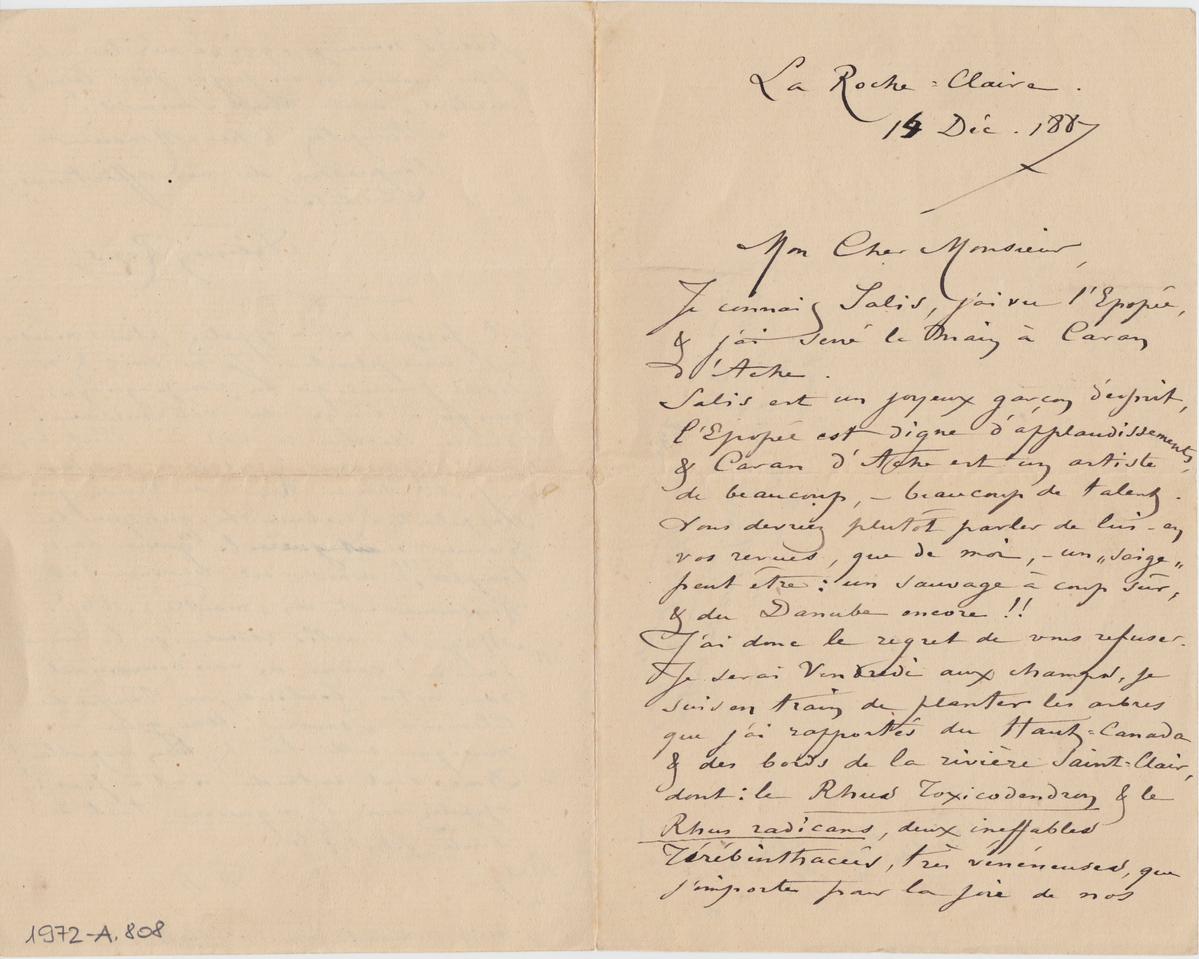 La Roche=Claire.
14 Déc. 1887
Mon Cher Monsieur,
Je connais Salis, j'ai vu l'Epopée,
& j'ai serré la main à Caran
d'Ache.
Salis est un joyeux garçon d'esprit,
l'Epopée est digne d'applaudissements,
& Caran d'Ache est un artiste
de beaucoup, – beaucoup de talent.
Vous devriez plutôt parler de lui – en
vos revues, que de moi, – un „saige„
peut être : un sauvage à coup sûr,
& du Danube encore !!
J'ai donc le regret de vous refuser.
Je serai Vendredi aux champs, je
suis en train de planter les arbres
que j'ai rapportés du Haut=Canada
& des bords de la rivière Saint=Clair,
dont : le Rhus Toxicodendron & le
Rhus radicans, deux ineffables
Térébinthacées, très vénéneuses, que
j'importe pour la joie de nos
1972-A.808